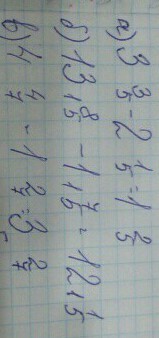 а) 3 3/5 - 2 1/5 = 1 2/5
б) 13 8/15 - 1 7/15 = 12 1/15
в) 4 4/7 - 1 2/7 = 3 2/7